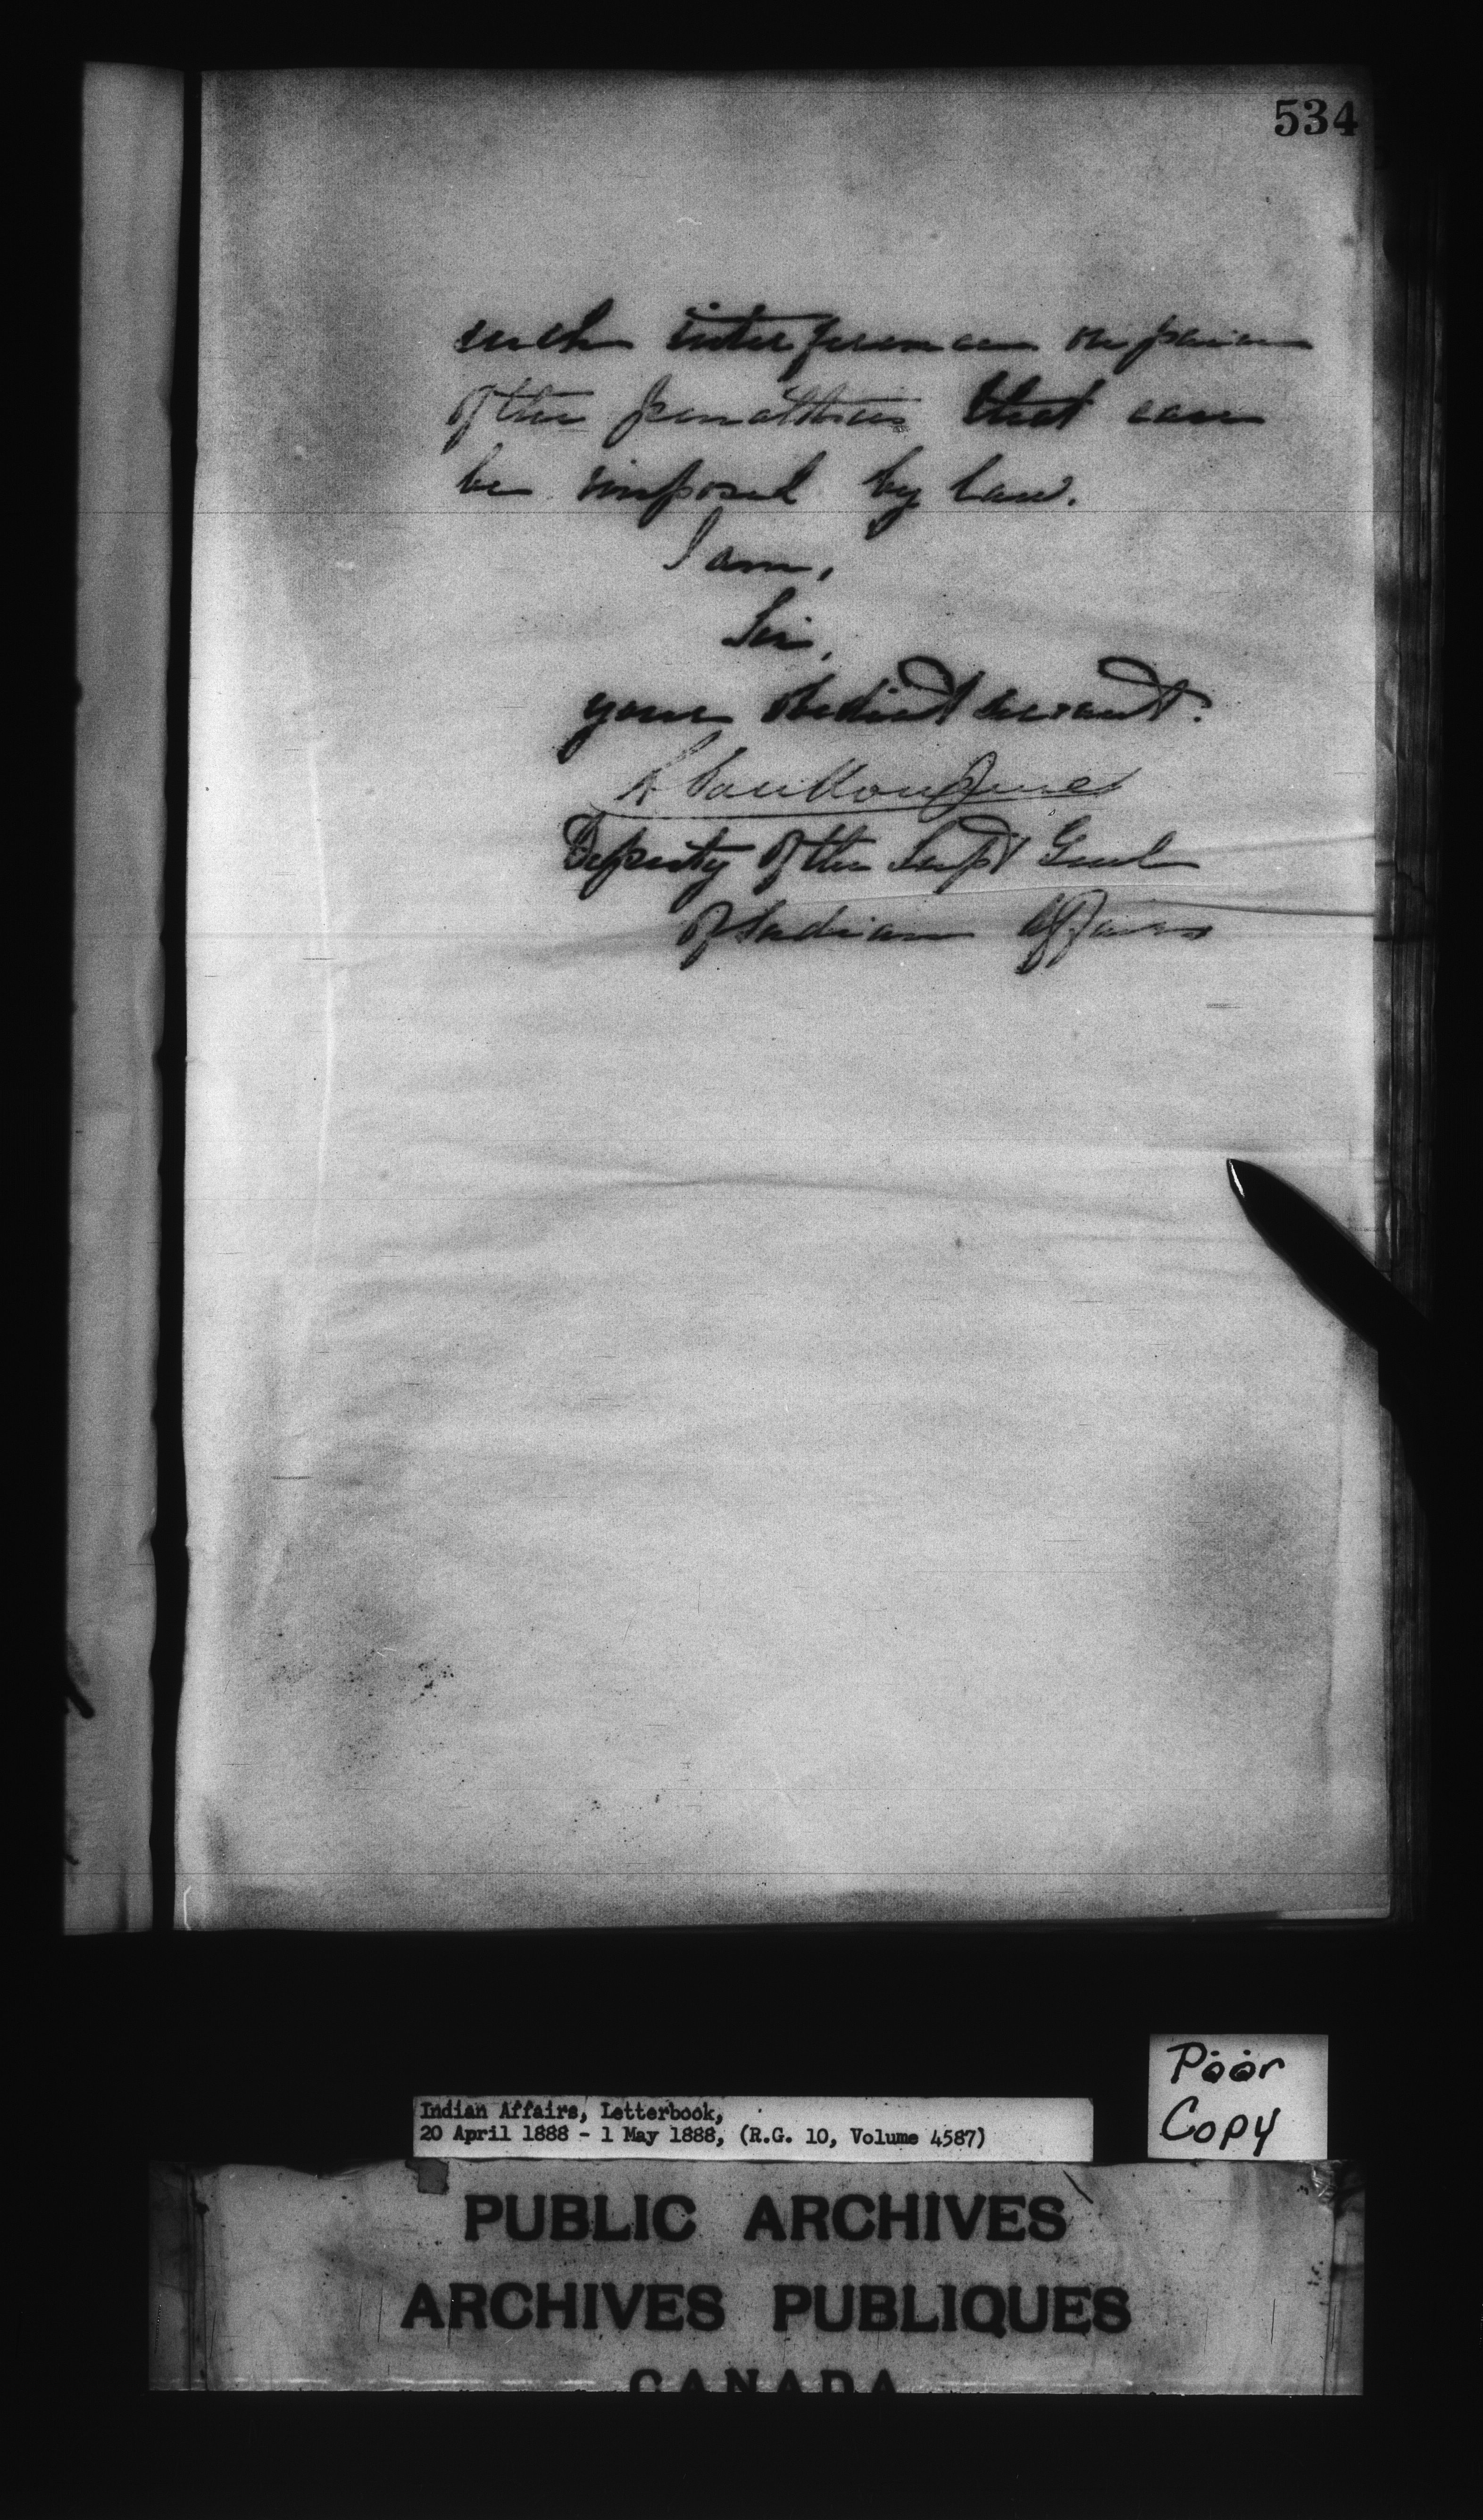 534
such interference on pain
of the penalties that can
be imposed by law.
I am,
Sir,
your obedient servant.
L VanKoughnet
Deputy of the Supt Genl
of Indian Affairs
Poor
Copy
Indian Affairs, Letterbook,
20 April 1888 - 1 May 1888, (R.G. 10, Volume 4587)
PUBLIC ARCHIVES
ARCHIVES PUBLIQUES
CANADA